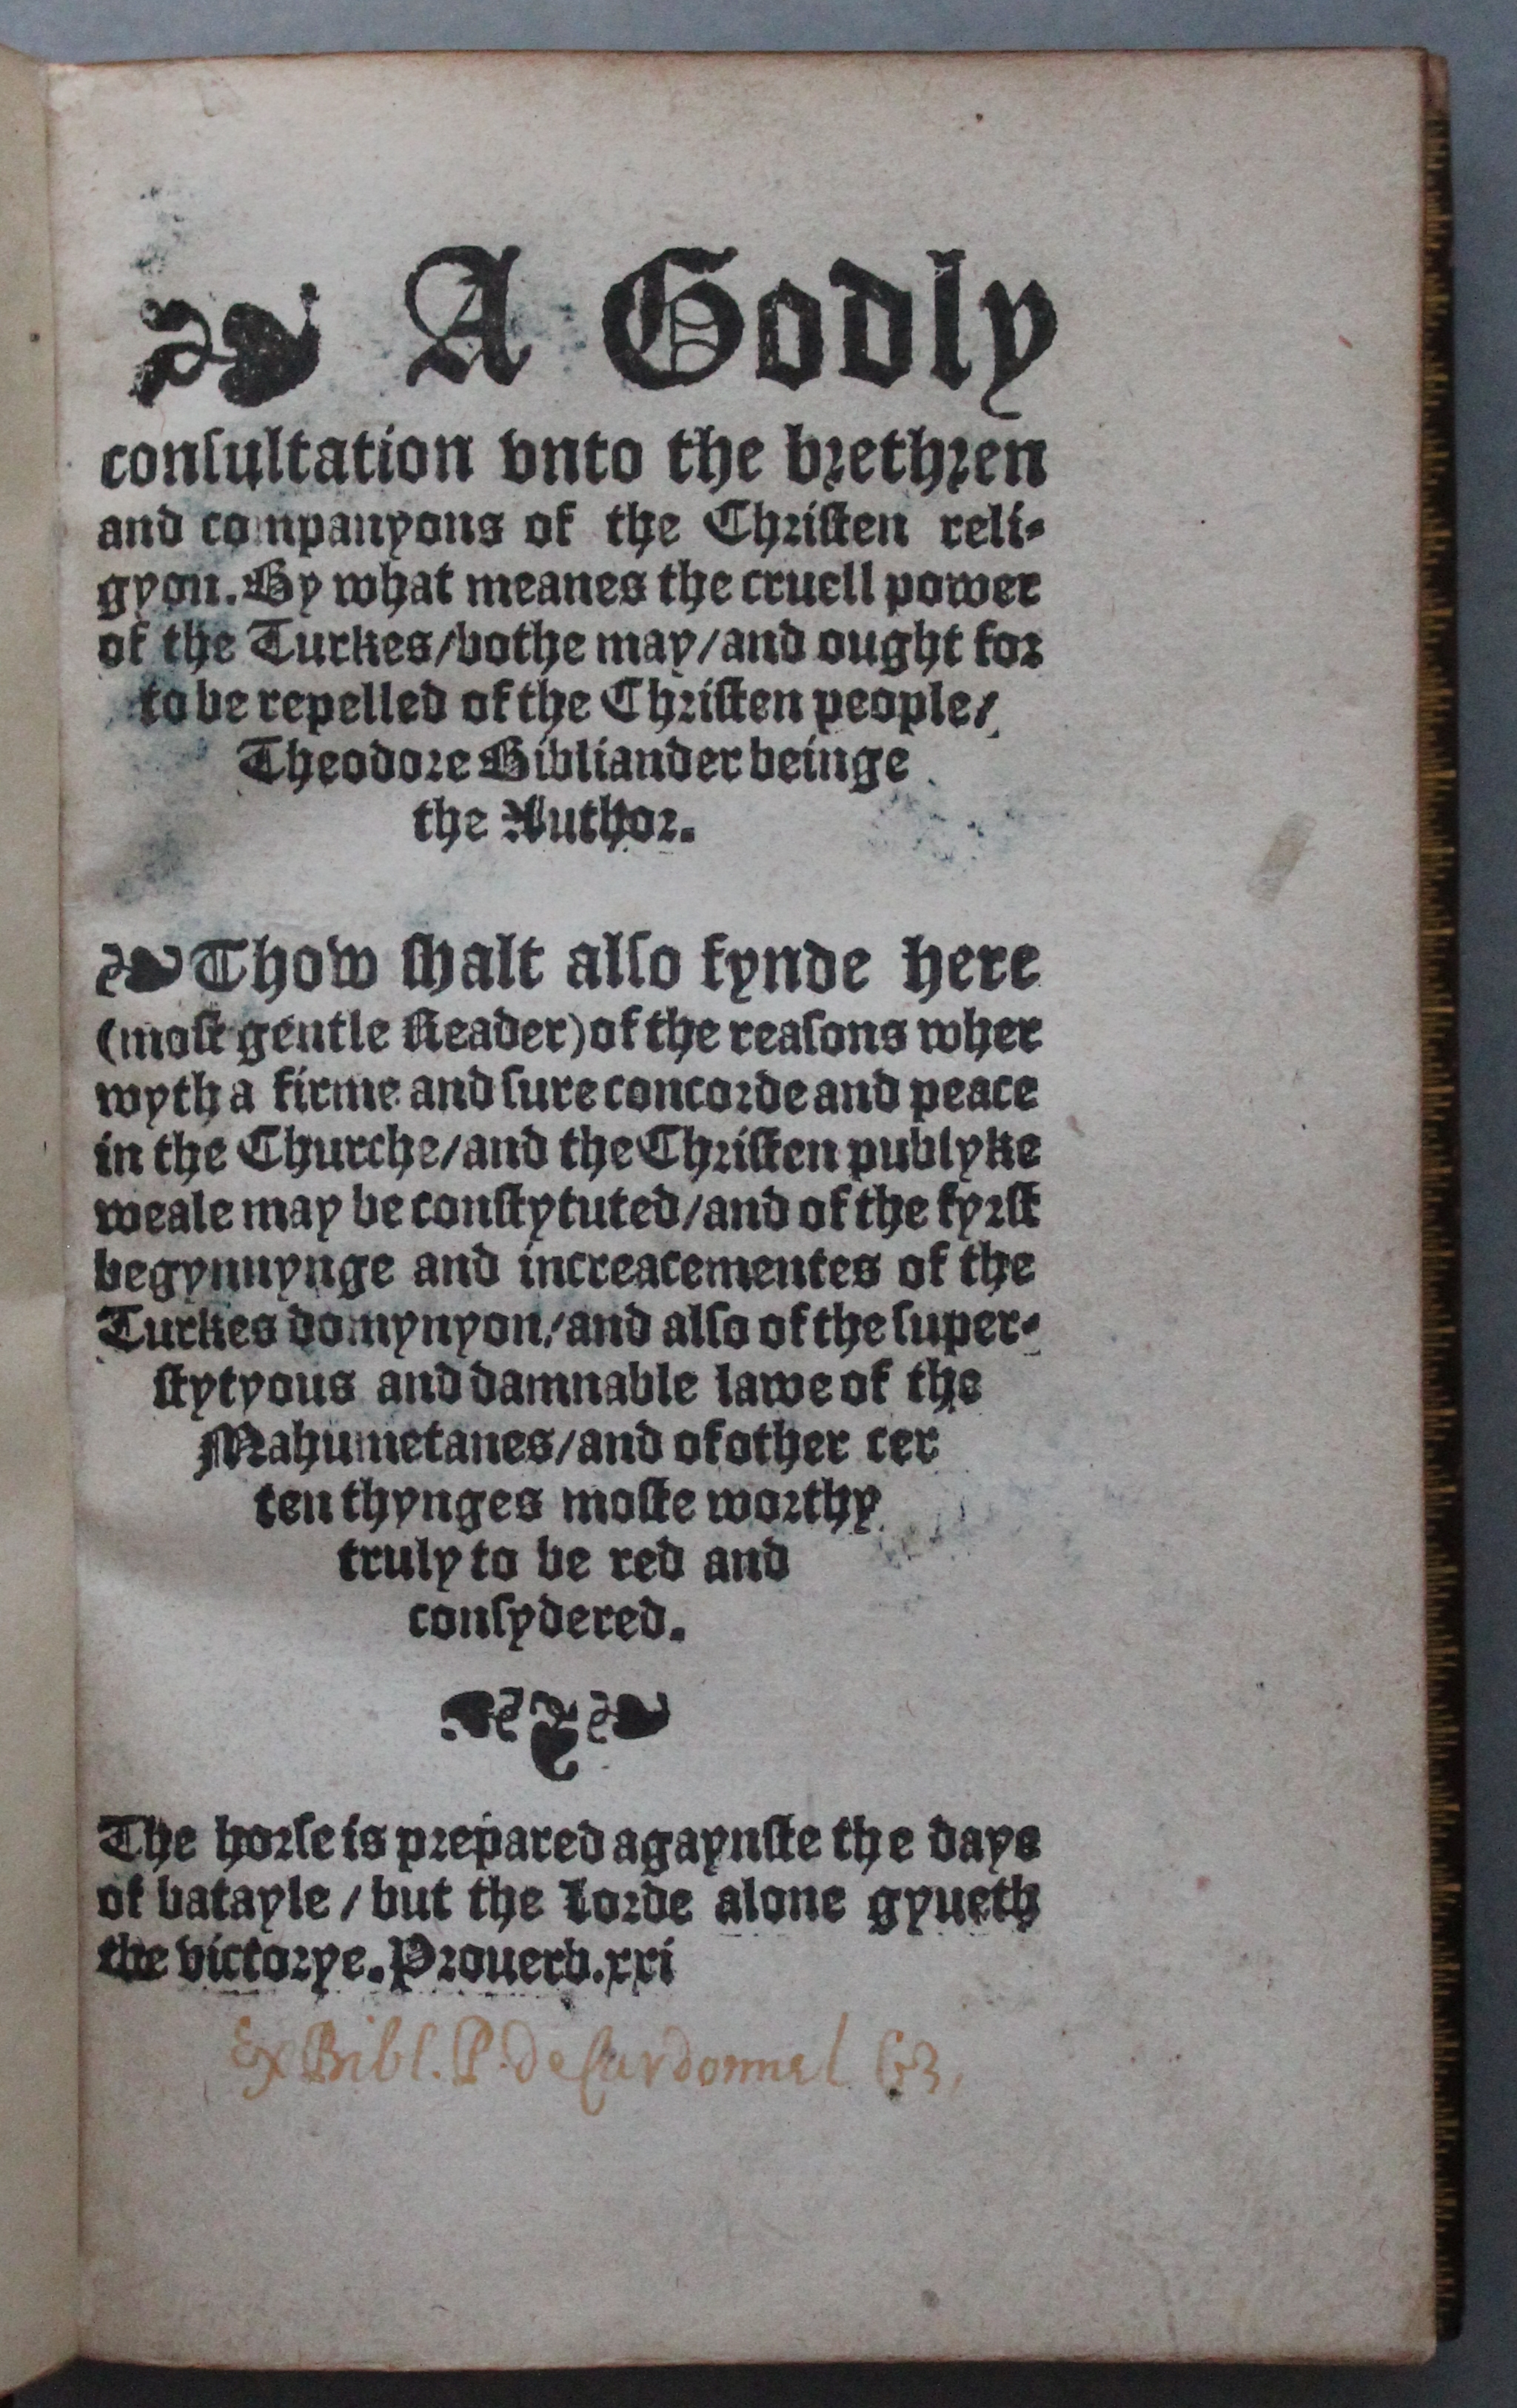 ❧ A Godly
conſultation vnto the brethren
and companyons of the Chriſten reli-
gyon. By what meanes the cruell power
of the Turkes/bothe may/and ought for
to be repelled of the Chriſten people/
Theodore Bibliander beinge
the Author.
❧ Thow ſhalt alſo fynde here
(moſt gentle Reader) of the reaſons wher
wyth a firme and ſure concorde and peace
in the Churche/and the Chriſten publyke
weale may be conſtytuted/and of the fyrſt
begynnynge and increacementes of the
Turkes domynyon/and alſo of the ſuper-
ſtytyous and damnable lawe of the
Mahumetanes/and of other cer
ten thynges moſte worthy
truly to be red and
conſydered.
The horſe is prepared agaynſte the daye
of batayle/but the Lorde alone gyueth
the victorye. Prouerb. xxi
Ex Bibl. P. de Cardonnel